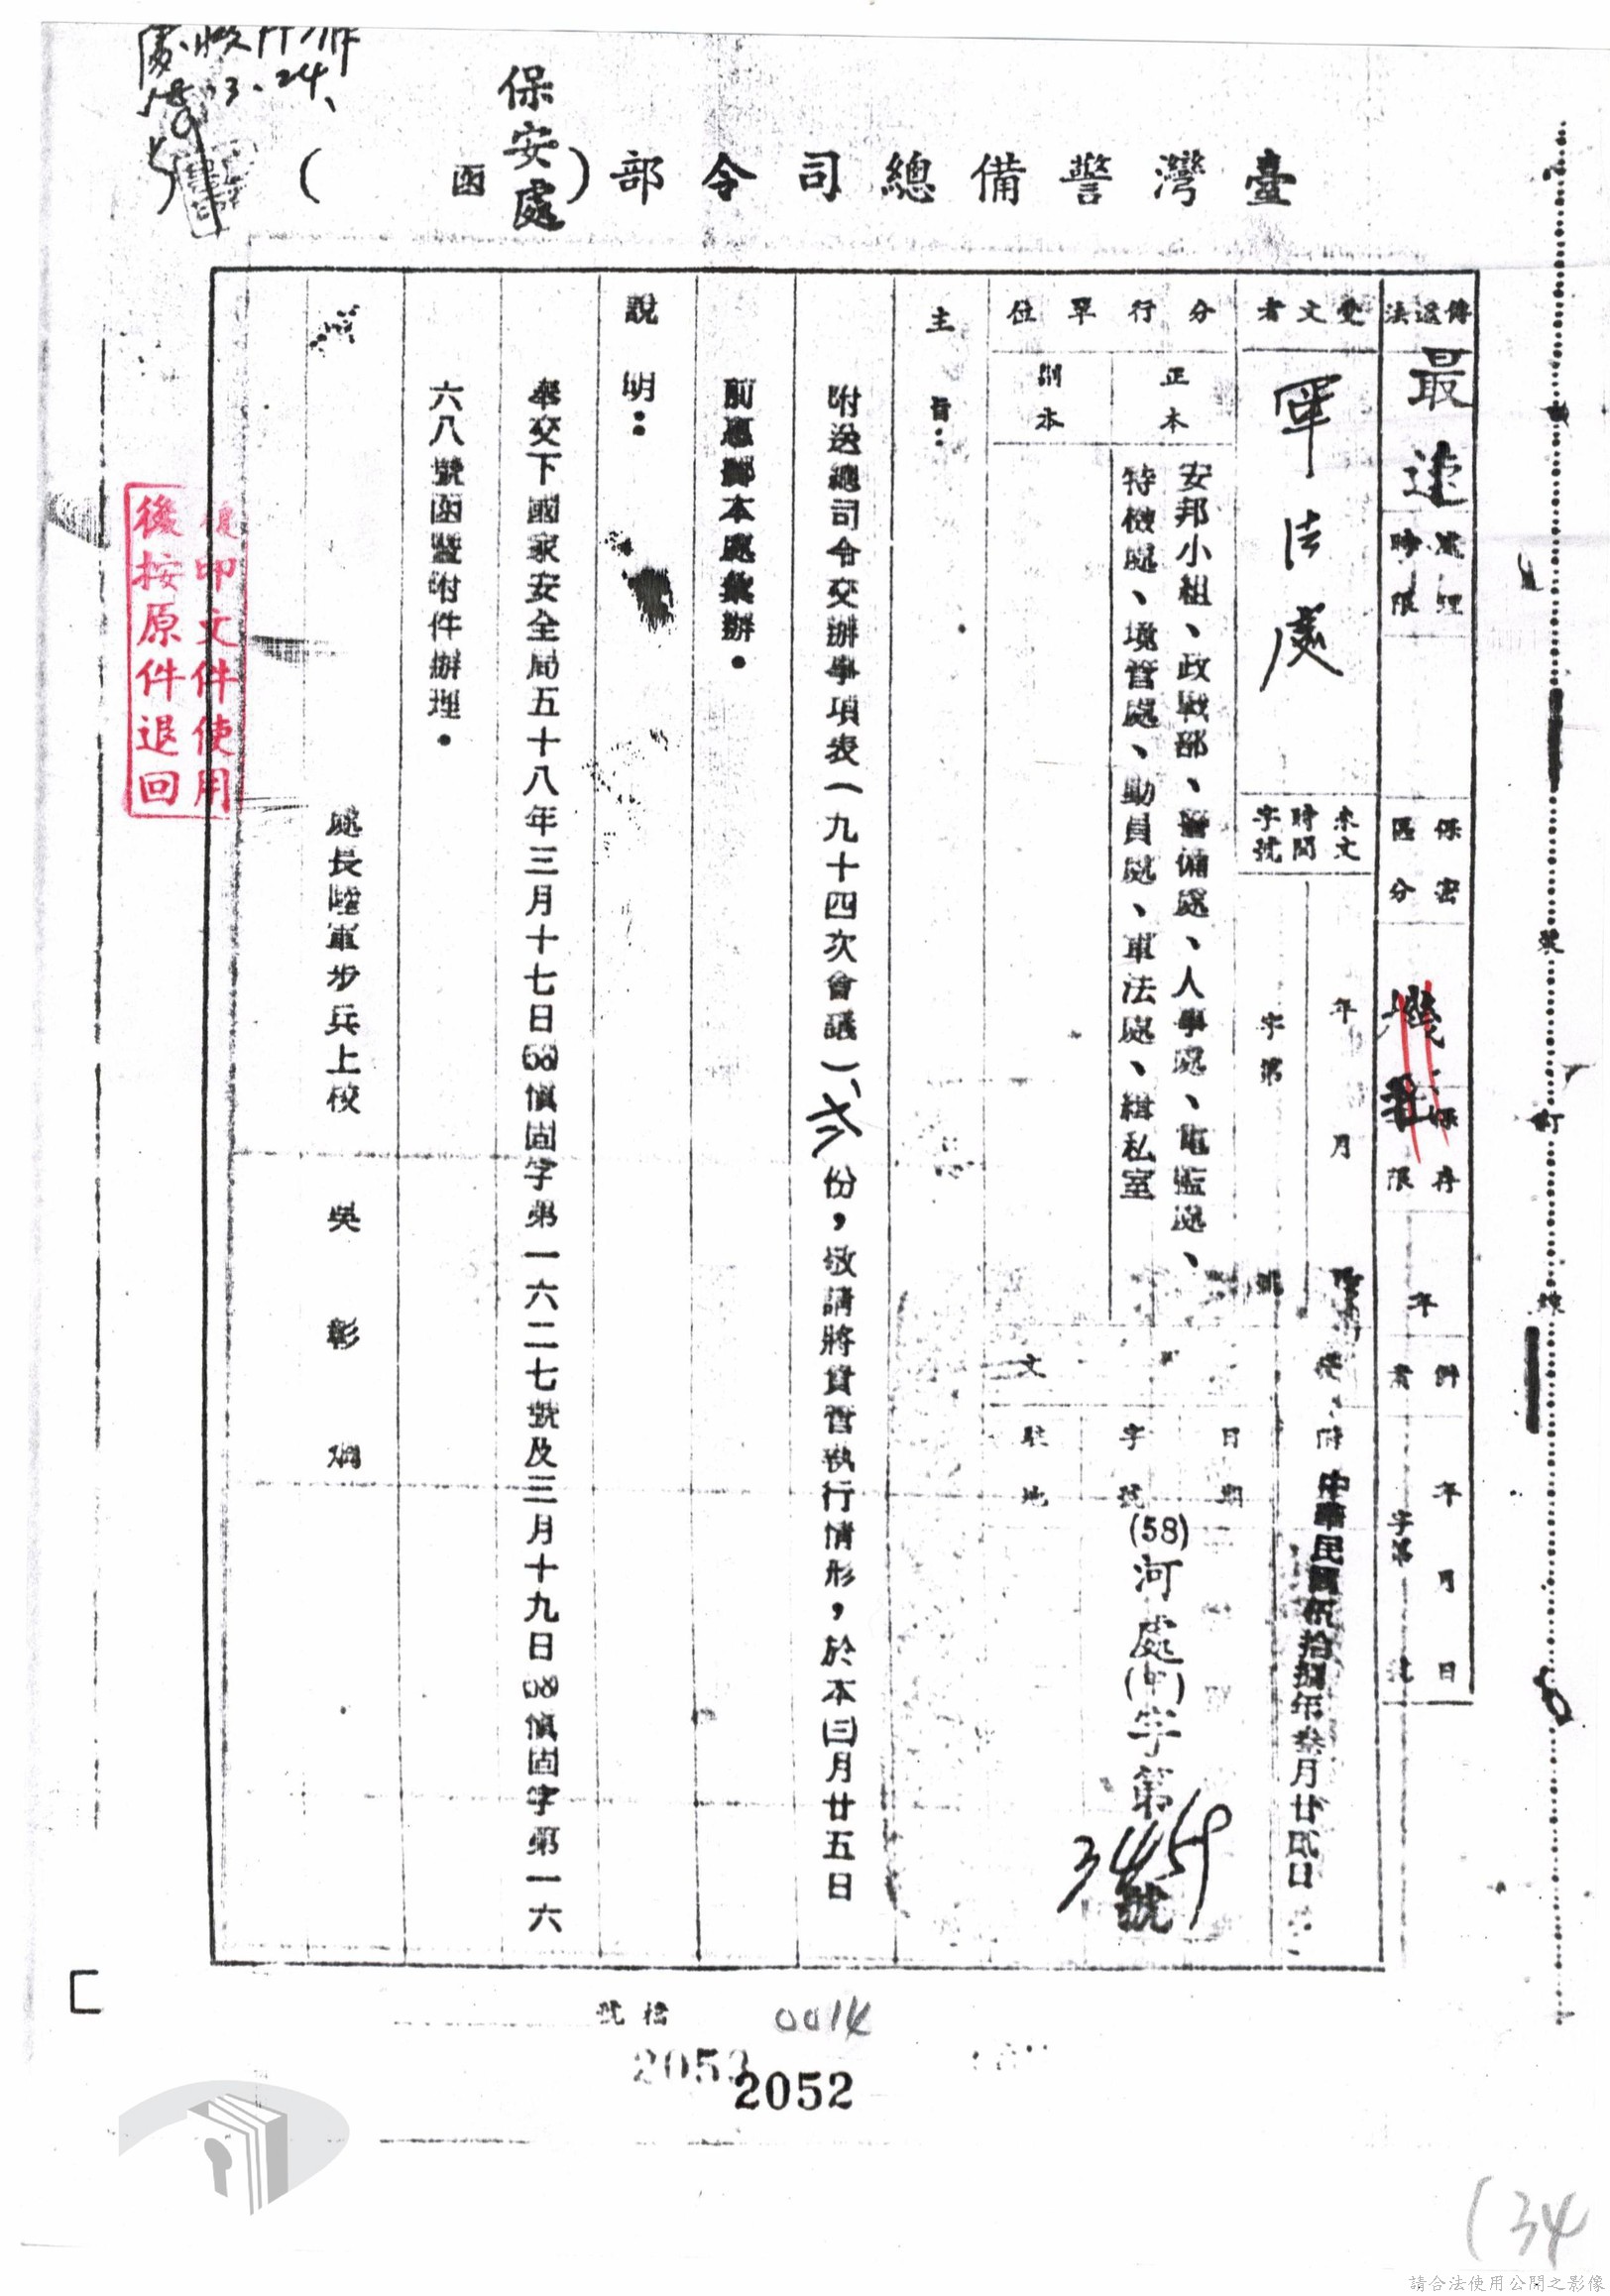 臺灣警備總司令部(保安處)函
最速
傳遞法
處理時限
保密區分
機密
保存年限
年
附件
年月日
字第號
受文者
軍法處
來文時間字號
年月
字第號
分行單位
正本
安邦小組、政戰部、警備處、人事處、電監處、
特檢處、境管處、動員處、軍法處、緝私室
副本
發文
日期
中華民國伍拾捌年叁月廿貳日
字號
(58)河處(申)字第3459號
駐地
主旨:
附送總司令交辦事項表(一九十四次會議)弍份,敬請將貴管執行情形,於本(三)月廿五日
前惠擲本處彙辦。
說明:
奉交下國家安全局五十八年三月十七日(58)慎固字第一六二七號及三月十九日(58)慎固字第一六
六八號函暨附件辦理。
處長陸軍步兵上校 吳彰炯
復印文件使用
後按原件退回
裝
訂
線
58.3.24.
檔號
0014
2053
2052
(34
請合法使用公開之影像